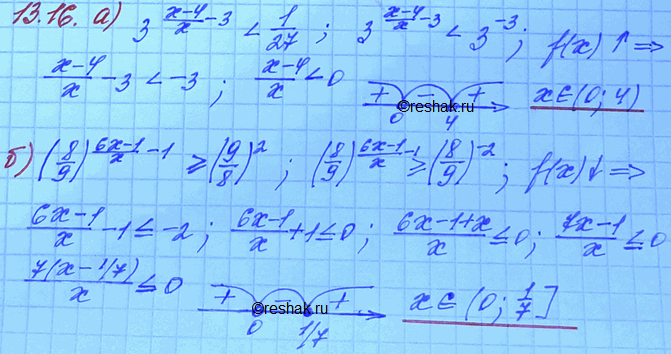 13.16. а) 3^((x-4)/x - 3) < 1/27 ; 3^((x-4)/x - 3) < 3^(-3) ; f(x) ↑ ⇒
(x-4)/x - 3 < -3 ; (x-4)/x < 0 + - + 0 4 x ∈ (0; 4)
©reshak.ru
б) (8/9)^((6x-1)/x - 1) ≥ (9/8)^2 ; (8/9)^((6x-1)/x - 1) ≥ (8/9)^(-2) ; f(x) ↓ ⇒
(6x-1)/x - 1 ≤ -2 ; (6x-1)/x + 1 ≤ 0 ; (6x-1+x)/x ≤ 0 ; (7x-1)/x ≤ 0
7(x-1/7)/x ≤ 0 + - + 0 1/7 x ∈ (0; 1/7]
©reshak.ru